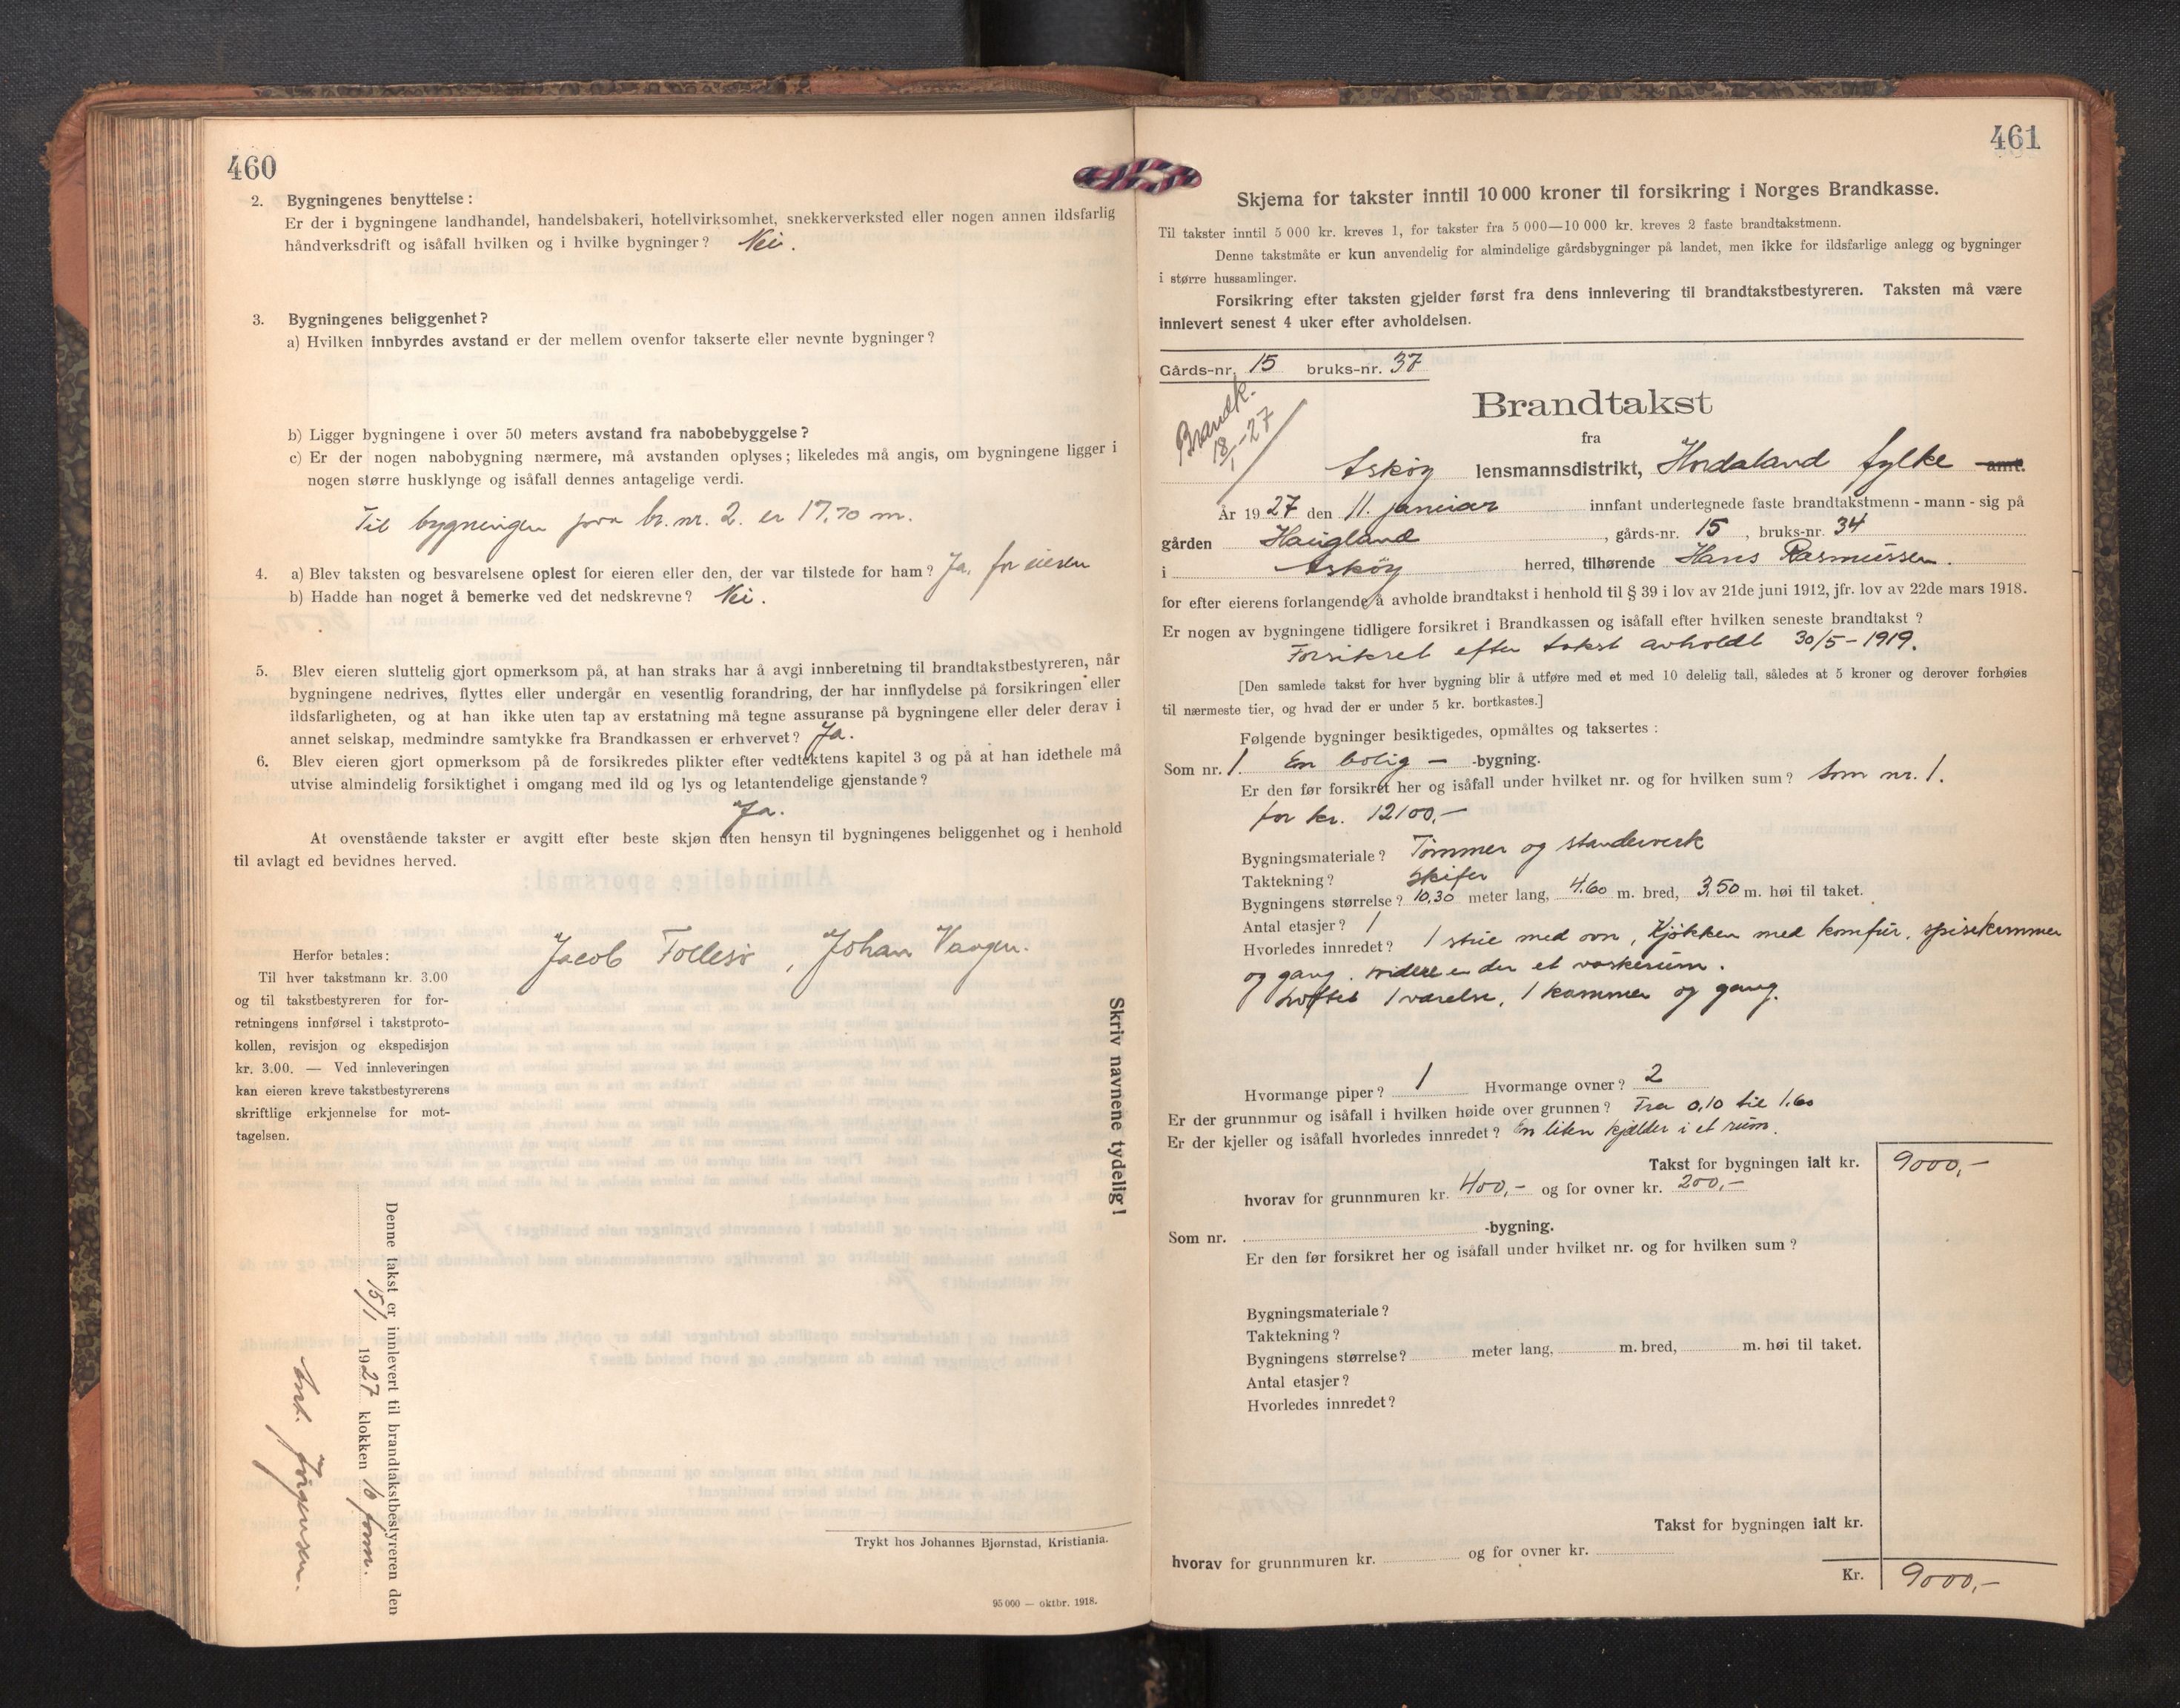 460
2. Bygningenes benyttelse:
Er der i bygningene landhandel, handelsbakeri, hotellvirksomhet, snekkerverksted eller nogen annen ildsfarlig
håndverksdrift og isåfall hvilken og i hvilke bygninger? Nei.
3. Bygningenes beliggenhet?
a) Hvilken innbyrdes avstand er der mellem ovenfor takserte eller nevnte bygninger?
b) Ligger bygningene i over 50 meters avstand fra nabobebyggelse?
c) Er der nogen nabobygning nærmere, må avstanden oplyses; likeledes må angis, om bygningene ligger i
nogen større husklynge og isåfall dennes antagelige verdi.
Til bygningen paa br. nr. 2. er 17,70 m.
4. a) Blev taksten og besvarelsene oplest for eieren eller den, der var tilstede for ham? Ja, for eieren
b) Hadde han noget å bemerke ved det nedskrevne? Nei.
5. Blev eieren sluttelig gjort opmerksom på, at han straks har å avgi innberetning til brandtakstbestyreren, når
bygningene nedrives, flyttes eller undergår en vesentlig forandring, der har innflydelse på forsikringen eller
ildsfarligheten, og at han ikke uten tap av erstatning må tegne assuranse på bygningene eller deler derav i
annet selskap, medmindre samtykke fra Brandkassen er erhvervet? Ja.
6. Blev eieren gjort opmerksom på de forsikredes plikter efter vedtektens kapitel 3 og på at han idethele må
utvise almindelig forsiktighet i omgang med ild og lys og letantendelige gjenstande?
Ja.
At ovenstående takster er avgitt efter beste skjøn uten hensyn til bygningenes beliggenhet og i henhold
til avlagt ed bevidnes herved.
Jacob Follesø, Johan Vaagen.
Herfor betales:
Til hver takstmann kr. 3.00
og til takstbestyreren for for-
retningens innførsel i takstproto-
kollen, revisjon og ekspedisjon
kr. 3.00. — Ved innleveringen
kan eieren kreve takstbestyrerens
skriftlige erkjennelse for mot-
tagelsen.
Skriv navnene tydelig!
Denne takst er innlevert til brandtakstbestyreren den
15/1 1927 klokken 10 form.
And. Jørgensen.
Trykt hos Johannes Bjørnstad, Kristiania.
95 000 — oktbr. 1918.
461
Skjema for takster inntil 10 000 kroner til forsikring i Norges Brandkasse.
Til takster inntil 5 000 kr. kreves 1, for takster fra 5 000—10 000 kr. kreves 2 faste brandtakstmenn.
Denne takstmåte er kun anvendelig for almindelige gårdsbygninger på landet, men ikke for ildsfarlige anlegg og bygninger
i større hussamlinger.
Forsikring efter taksten gjelder først fra dens innlevering til brandtakstbestyreren. Taksten må være
innlevert senest 4 uker efter avholdelsen.
Gårds-nr. 15 bruks-nr. 37
Brandk.
18/1-27
Brandtakst
fra
Askøy lensmannsdistrikt, Hordaland fylke amt.
År 1927 den 11. januar innfant undertegnede faste brandtakstmenn - mann - sig på
gården Haugland, gårds-nr. 15, bruks-nr. 34
i Askøy herred, tilhørende Hans Rasmussen.
for efter eierens forlangende å avholde brandtakst i henhold til § 39 i lov av 21de juni 1912, jfr. lov av 22de mars 1918.
Er nogen av bygningene tidligere forsikret i Brandkassen og isåfall efter hvilken seneste brandtakst?
Forsikret efter takst avholdt 30/5-1919.
[Den samlede takst for hver bygning blir å utføre med et med 10 delelig tall, således at 5 kroner og derover forhøies
til nærmeste tier, og hvad der er under 5 kr. bortkastes.]
Følgende bygninger besiktigedes, opmåltes og taksertes:
Som nr. 1. En bolig — -bygning.
Er den før forsikret her og isåfall under hvilket nr. og for hvilken sum? Som nr. 1.
for kr. 12100,-
Bygningsmateriale? Tømmer og standerverk
Taktekning? Skifer
Bygningens størrelse? 10,30 meter lang, 4.60 m. bred, 3,50 m. høi til taket.
Antal etasjer? 1
Hvorledes innredet? 1 stue med ovn, Kjøkken med komfur, spisekammer
og gang. Videre er der et vaskerum.
Loftet 1 værelse, 1 kammer og gang.
Hvormange piper? 1 Hvormange ovner? 2
Er der grunnmur og isåfall i hvilken høide over grunnen? Fra 0,10 til 1.60
Er der kjeller og isåfall hvorledes innredet? En liten kjælder i et rum.
Takst for bygningen ialt kr. 9000,-
hvorav for grunnmuren kr. 400,- og for ovner kr. 200,-
Som nr. -bygning.
Er den før forsikret her og isåfall under hvilket nr. og for hvilken sum?
Bygningsmateriale?
Taktekning?
Bygningens størrelse? meter lang, m. bred, m. høi til taket.
Antal etasjer?
Hvorledes innredet?
Takst for bygningen ialt kr.
hvorav for grunnmuren kr. og for ovner kr.
Kr. 9000,-